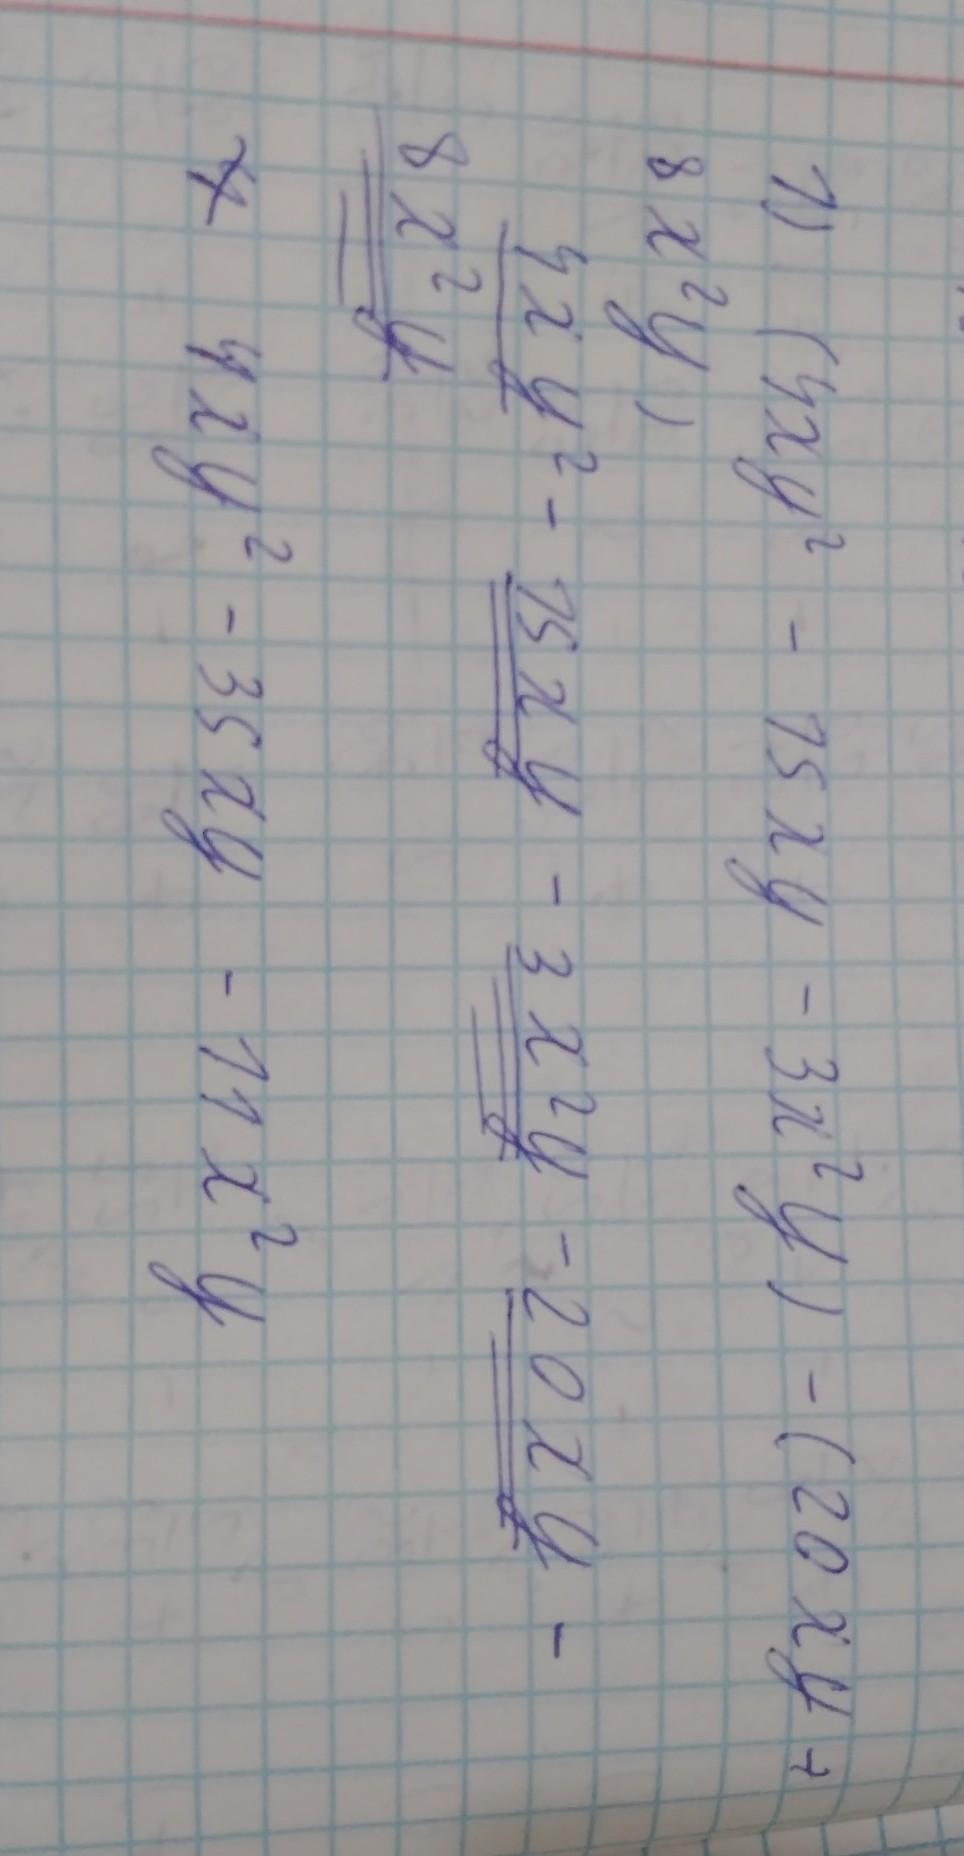 1) (4xy² - 15xy - 3x²y) - (20xy +
8x²y)
4xy² - 15xy - 3x²y - 20xy -
8x²y
4xy² - 35xy - 11x²y